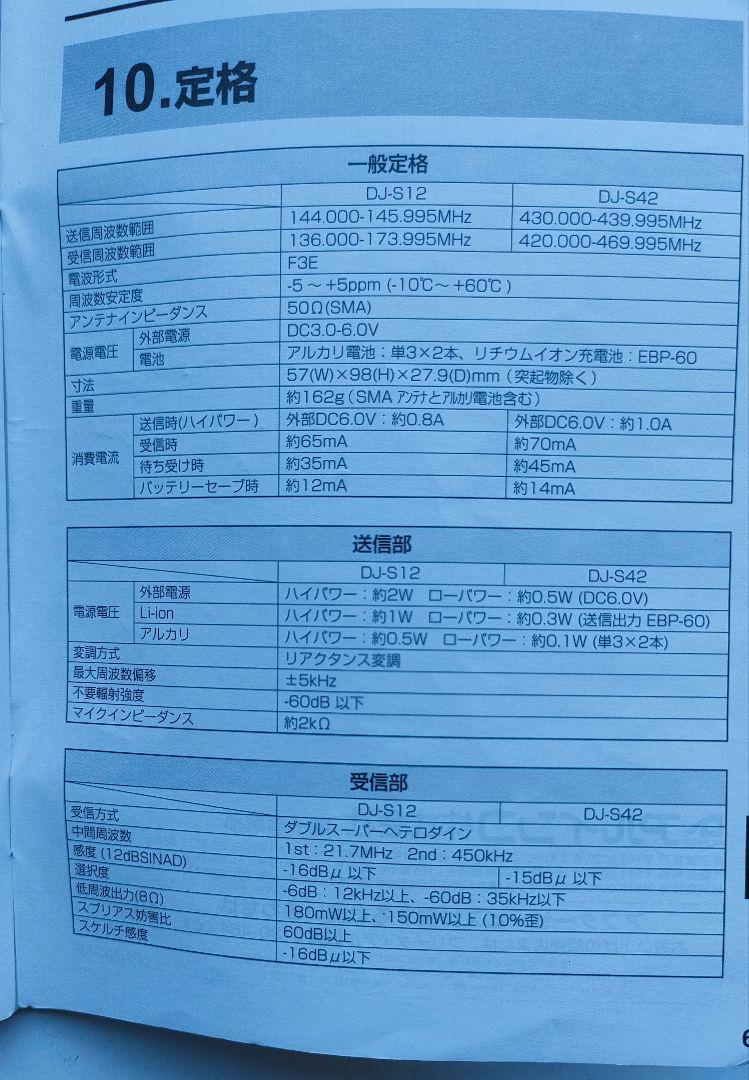 10.定格
一般定格
DJ-S12 DJ-S42
送信周波数範囲 144.000-145.995MHz 430.000-439.995MHz
受信周波数範囲 136.000-173.995MHz 420.000-469.995MHz
電波形式 F3E
周波数安定度 -5～+5ppm (-10℃～+60℃)
アンテナインピーダンス 50Ω(SMA)
電源電圧 外部電源 DC3.0-6.0V
電池 アルカリ電池：単3×2本、リチウムイオン充電池：EBP-60
寸法 57(W)×98(H)×27.9(D)mm (突起物除く)
重量 約162g(SMA アンテナとアルカリ電池含む)
消費電流 送信時(ハイパワー) 外部DC6.0V：約0.8A 外部DC6.0V：約1.0A
受信時 約65mA 約70mA
待ち受け時 約35mA 約45mA
バッテリーセーブ時 約12mA 約14mA
送信部
DJ-S12 DJ-S42
電源電圧 外部電源 ハイパワー：約2W ローパワー：約0.5W (DC6.0V)
Li-ion ハイパワー：約1W ローパワー：約0.3W (送信出力 EBP-60)
アルカリ ハイパワー：約0.5W ローパワー：約0.1W (単3×2本)
変調方式 リアクタンス変調
最大周波数偏移 ±5kHz
不要輻射強度 -60dB 以下
マイクインピーダンス 約2kΩ
受信部
DJ-S12 DJ-S42
受信方式 ダブルスーパーヘテロダイン
中間周波数 1st：21.7MHz 2nd：450kHz
感度 (12dBSINAD) -16dBμ 以下 -15dBμ 以下
選択度 -6dB：12kHz以上、-60dB：35kHz以下
低周波出力(8Ω) 180mW以上、150mW以上 (10%歪)
スプリアス妨害比 60dB以上
スケルチ感度 -16dBμ以下